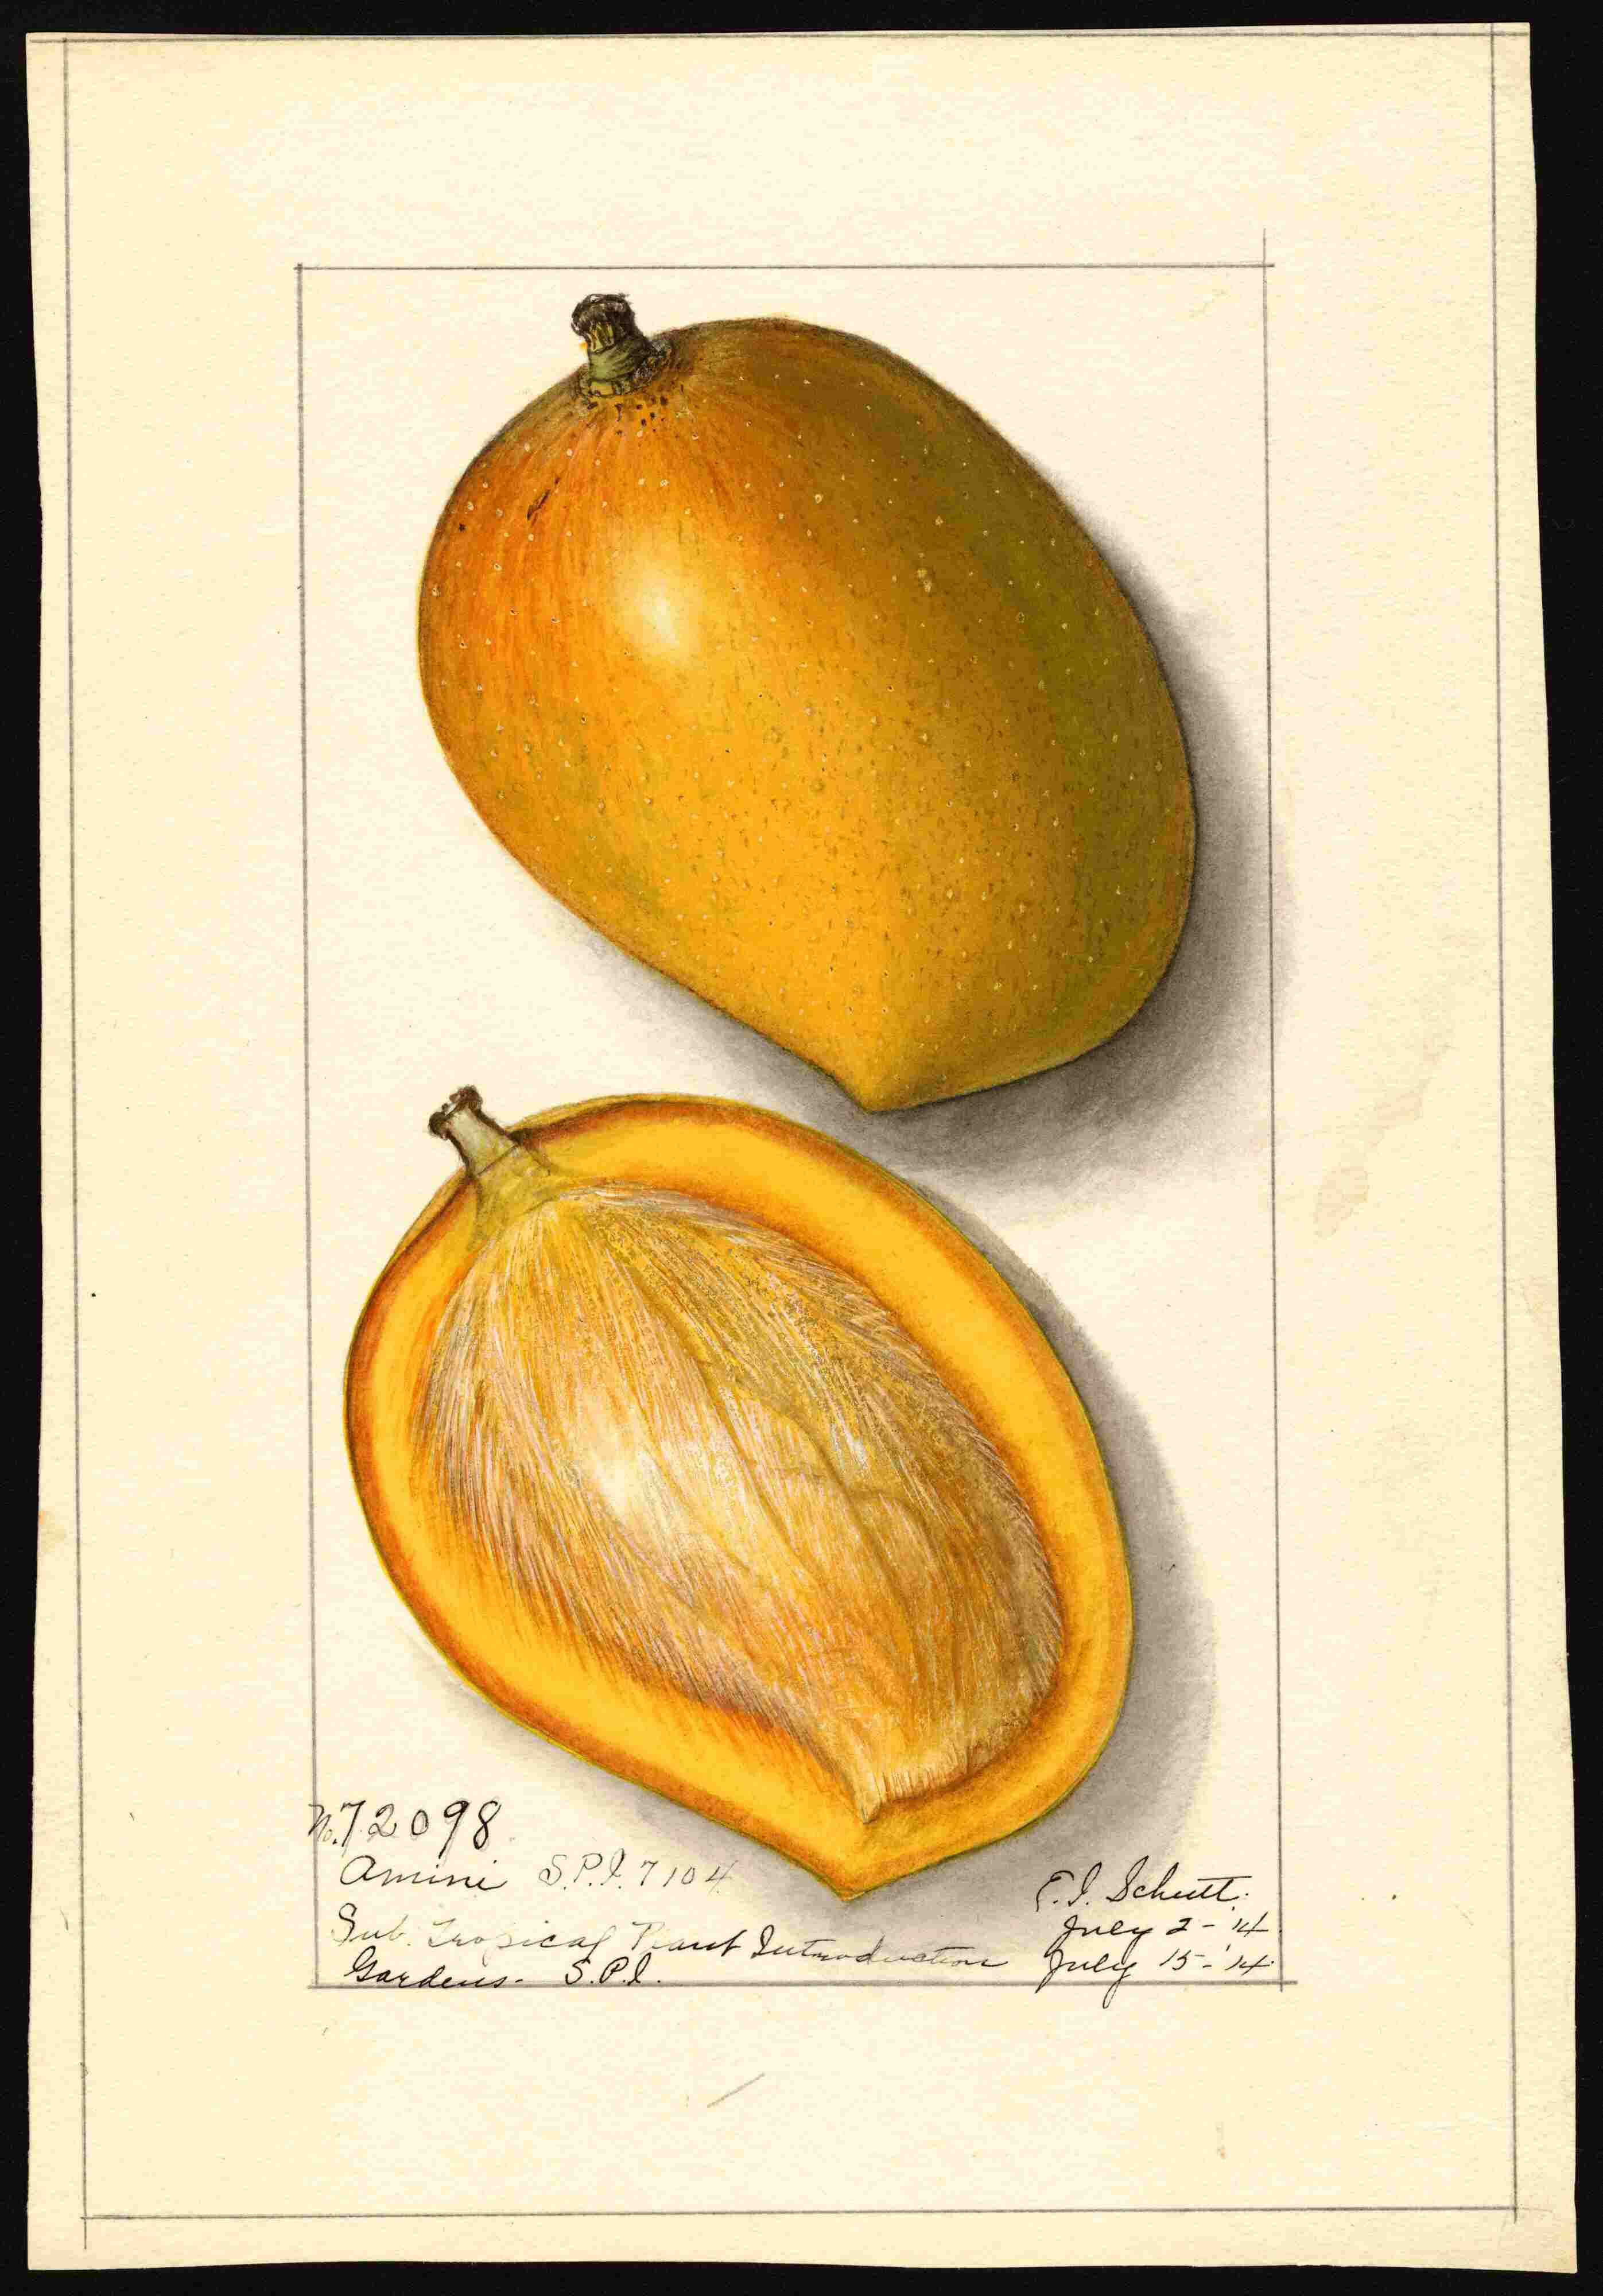 No. 72098.
Amini S.P.I. 7104
Sub. Tropical Plant Introduction
Gardens. S.P.I.
E.I. Schutt.
July 2 - '14
July 15 - '14.